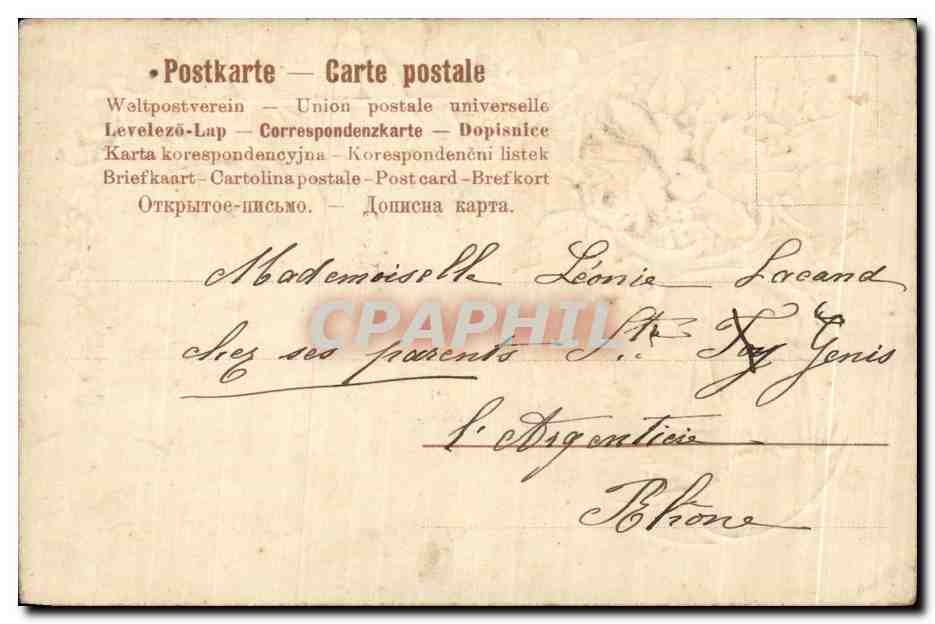 Postkarte — Carte postale
Weltpostverein — Union postale universelle
Levelező-Lap — Correspondenzkarte — Dopisnice
Karta korespondencyjna - Korespondenčni listek
Briefkaart - Cartolina postale - Post card - Brefkort
Открытое-письмо. — Дописна карта.
Mademoiselle Léonie Lacand
CPAPHIL
chez ses parents Ste Foy Genis
l'Argentière
Rhône